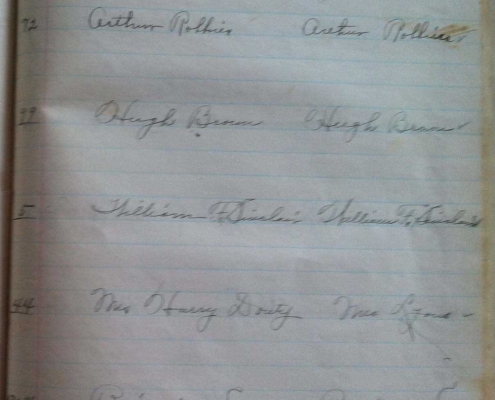 72 Arthur Robbins Arthur Robbins
99 Hugh Brown Hugh Brown
5 William F. Sinclair William F. Sinclair
44 Mrs Harry Doity Mrs Lyons